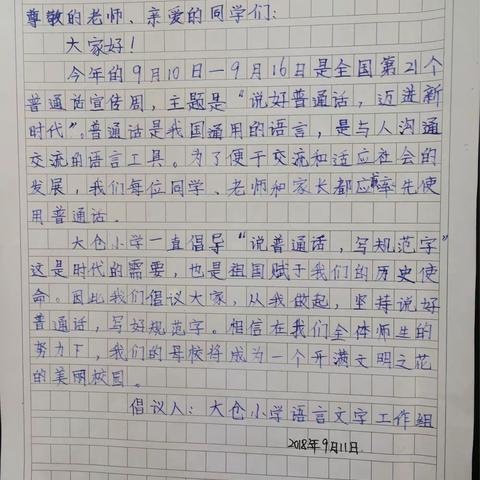 尊敬的老师、亲爱的同学们:
大家好!
今年的9月10日—9月16日是全国第21个
普通话宣传周,主题是“说好普通话,迈进新
时代”。普通话是我国通用的语言,是与人沟通
交流的语言工具。为了便于交流和适应社会的
发展,我们每位同学、老师和家长都应率先使
用普通话。
大仓小学一直倡导“说普通话,写规范字”
这是时代的需要,也是祖国赋于我们的历史使
命。因此我们倡议大家,从我做起,坚持说好
普通话,写好规范字。相信在我们全体师生的
努力下,我们的母校将成为一个开满文明之花
的美丽校园。
倡议人:大仓小学语言文字工作组
2018年9月11日